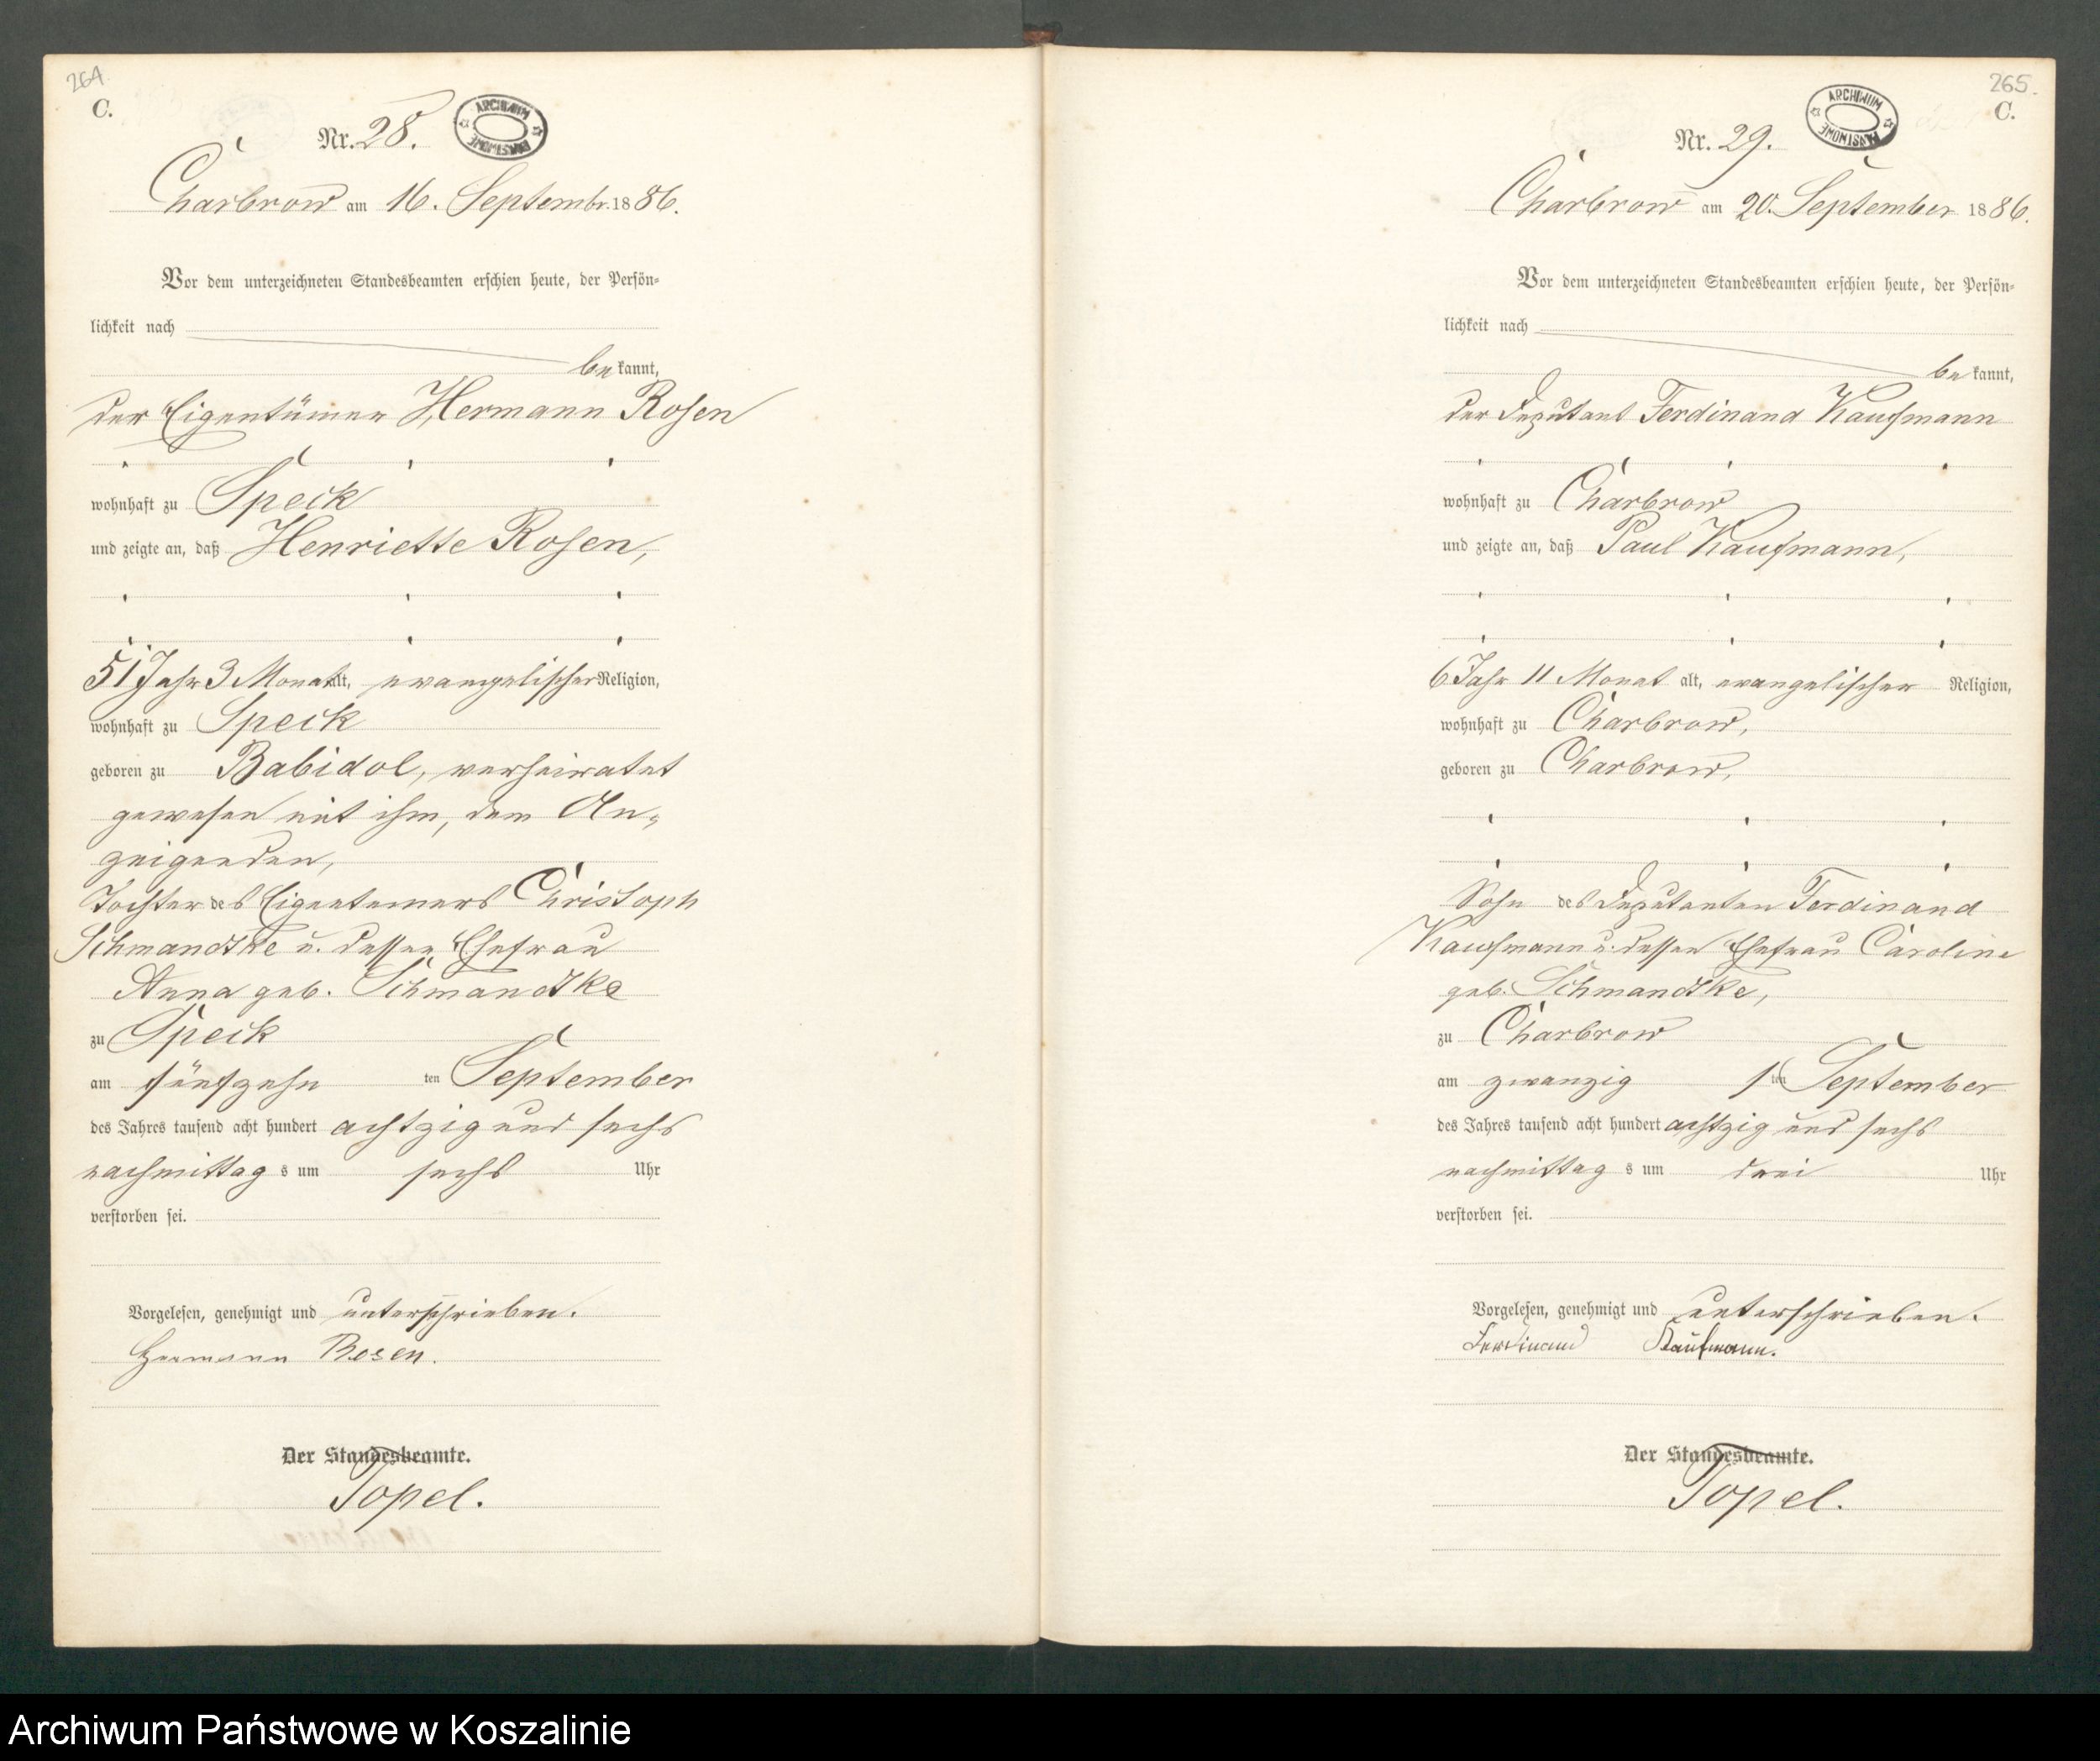 264
C.
Nr. 28.
ARCHIWUM PAŃSTWOWE
Charbrow am 16. Septembr. 1886.
Vor dem unterzeichneten Standesbeamten erschien heute, der Persön-
lichkeit nach
bekannt,
der Eigentümer Hermann Rosen
wohnhaft zu Speck
und zeigte an, daß Henriette Rosen,
51 Jahr 3 Monat alt, evangelischer Religion,
wohnhaft zu Speck
geboren zu Babidol, verheiratet
gewesen mit ihm, dem An-
zeigenden,
Tochter des Eigentümers Christoph
Schmandtke u. dessen Ehefrau
Anna geb. Schmandtke
zu Speck
am fünfzehn ten September
des Jahres tausend acht hundert achtzig und sechs
nachmittags um sechs Uhr
verstorben sei.
Vorgelesen, genehmigt und unterschrieben.
Hermann Rosen.
Der Standesbeamte.
Topel.
265.
C.
Nr. 29.
ARCHIWUM PAŃSTWOWE
Charbrow am 20. September 1886.
Vor dem unterzeichneten Standesbeamten erschien heute, der Persön-
lichkeit nach
bekannt,
der Deputant Ferdinand Kaufmann
wohnhaft zu Charbrow
und zeigte an, daß Paul Kaufmann,
6 Jahr 11 Monat alt, evangelischer Religion,
wohnhaft zu Charbrow,
geboren zu Charbrow,
Sohn des Deputanten Ferdinand
Kaufmann u. dessen Ehefrau Caroline
geb. Schmandtke,
zu Charbrow
am zwanzigsten September
des Jahres tausend acht hundert achtzig und sechs
nachmittags um drei Uhr
verstorben sei.
Vorgelesen, genehmigt und unterschrieben.
Ferdinand Kaufmann.
Der Standesbeamte.
Topel.
Archiwum Państwowe w Koszalinie